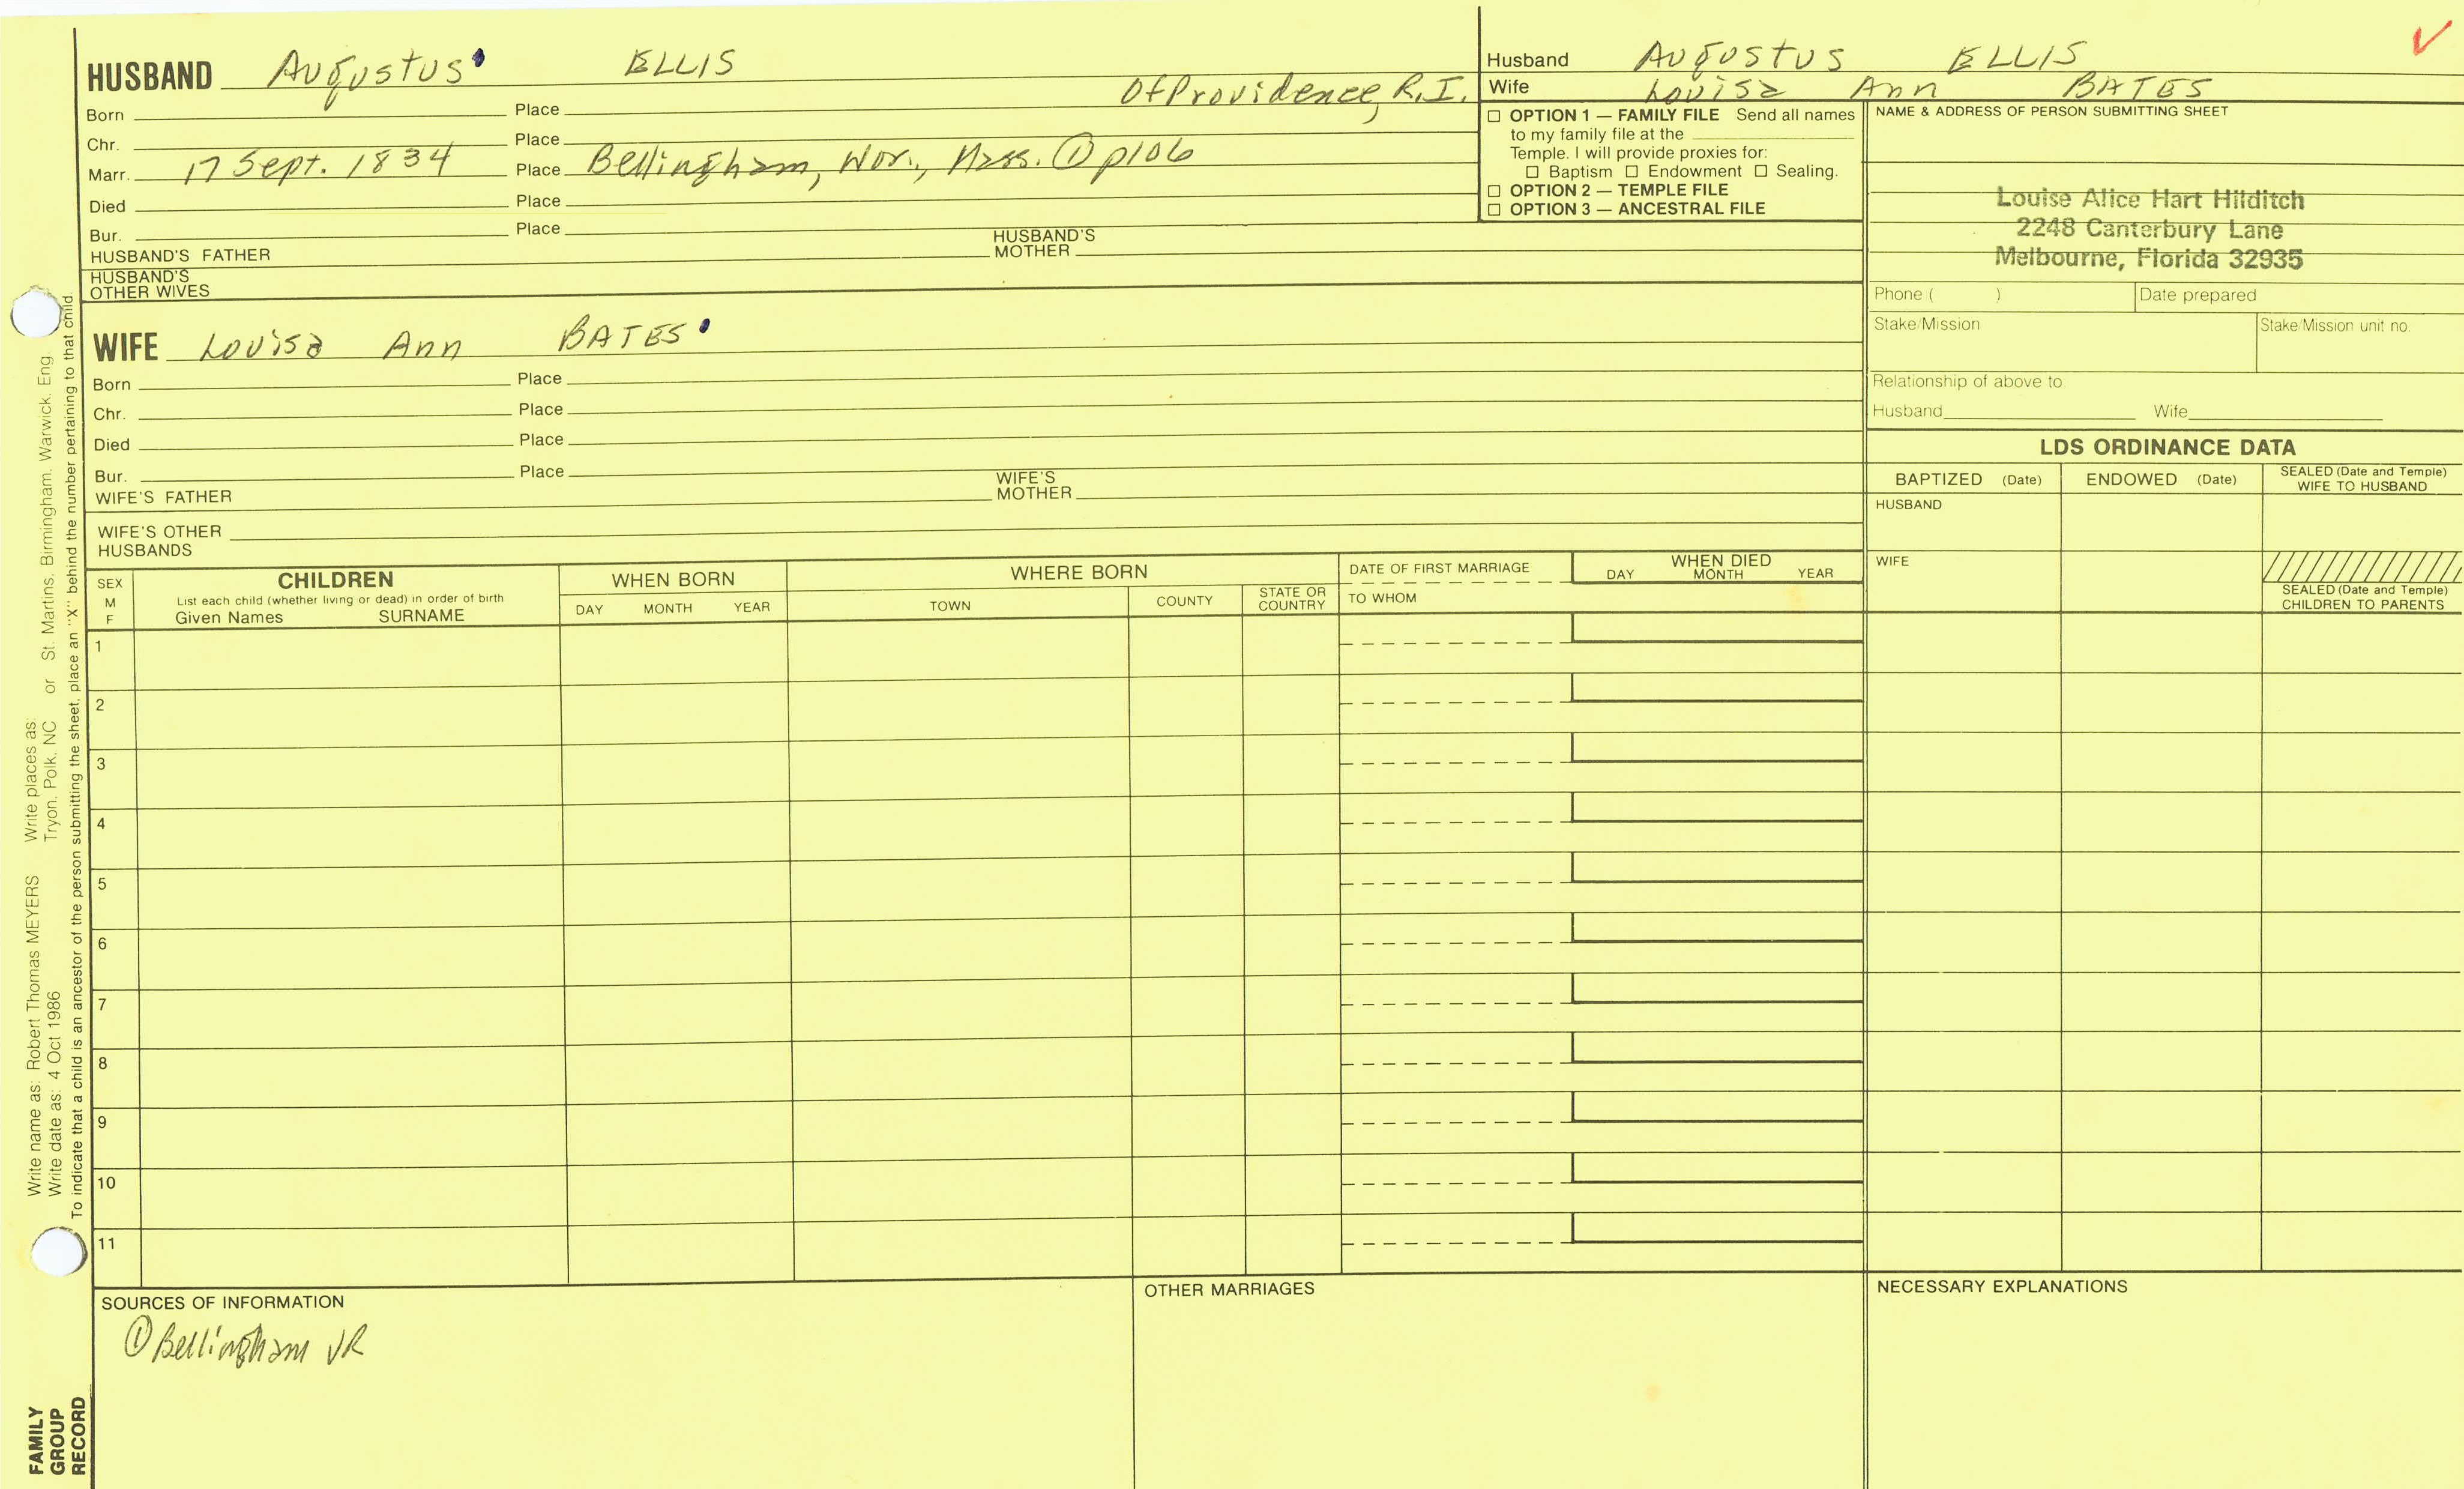 HUSBAND Augustus ELLIS
Of Providence, R.I.
Born Place
Chr. Place
Marr. 17 Sept. 1834 Place Bellingham, Wor., Mass. ① p106
Died Place
Bur. Place
HUSBAND'S FATHER HUSBAND'S MOTHER
HUSBAND'S OTHER WIVES
Husband Augustus ELLIS
Wife Louisa Ann BATES
☐ OPTION 1 — FAMILY FILE Send all names
to my family file at the
Temple. I will provide proxies for:
☐ Baptism ☐ Endowment ☐ Sealing.
☐ OPTION 2 — TEMPLE FILE
☐ OPTION 3 — ANCESTRAL FILE
NAME & ADDRESS OF PERSON SUBMITTING SHEET
Louise Alice Hart Hilditch
2248 Canterbury Lane
Melbourne, Florida 32935
Phone ( ) Date prepared
Stake/Mission Stake/Mission unit no.
Relationship of above to:
Husband Wife
WIFE Louisa Ann BATES
Born Place
Chr. Place
Died Place
Bur. Place
WIFE'S FATHER WIFE'S MOTHER
WIFE'S OTHER
HUSBANDS
LDS ORDINANCE DATA
BAPTIZED (Date) ENDOWED (Date) SEALED (Date and Temple)
WIFE TO HUSBAND
HUSBAND
WIFE
SEALED (Date and Temple)
CHILDREN TO PARENTS
SEX
M
F
CHILDREN
List each child (whether living or dead) in order of birth
Given Names SURNAME
WHEN BORN
DAY MONTH YEAR
WHERE BORN
TOWN COUNTY STATE OR COUNTRY
DATE OF FIRST MARRIAGE
TO WHOM
WHEN DIED
DAY MONTH YEAR
1
2
3
4
5
6
7
8
9
10
11
SOURCES OF INFORMATION
① Bellingham VR
OTHER MARRIAGES
NECESSARY EXPLANATIONS
Write name as: Robert Thomas MEYERS Write places as:
Write date as: 4 Oct 1986 Tryon, Polk, NC or St. Martins, Birmingham, Warwick, Eng
To indicate that a child is an ancestor of the person submitting the sheet, place an "X" behind the number pertaining to that child.
FAMILY
GROUP
RECORD